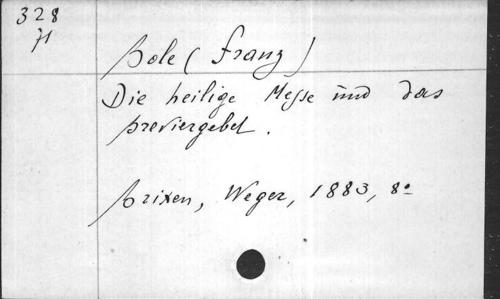 328
71
Bole (Franz)
Die heilige Messe und das
Breviergebet.
Brixen, Weger, 1883, 8°